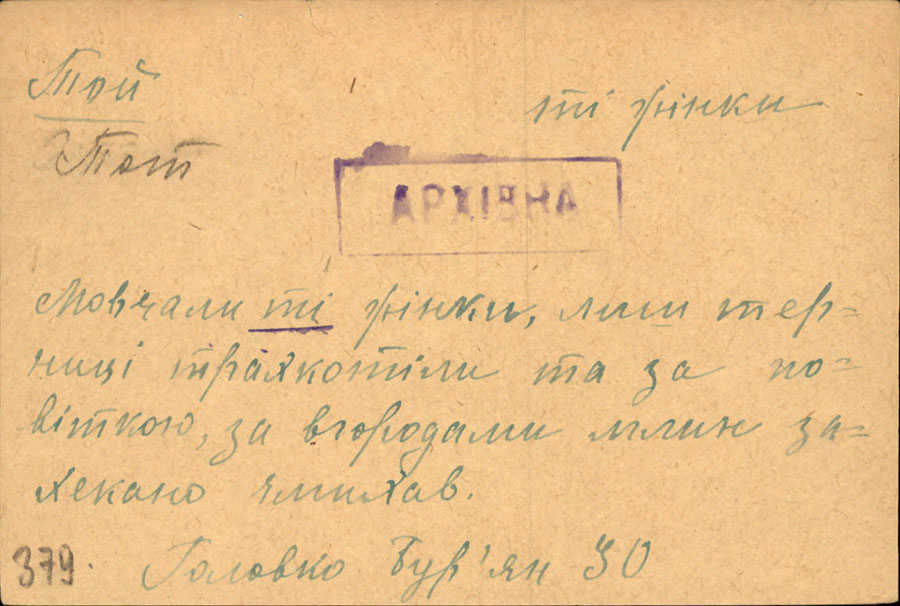 Той
ті жінки
Тот
АРХІВНА
Мовчали ті жінки, лиш тер-
ниці трахкотіли та за по-
віткою, за вгородами млин за-
хекано чмихав.
379. Головко Бур'ян 30